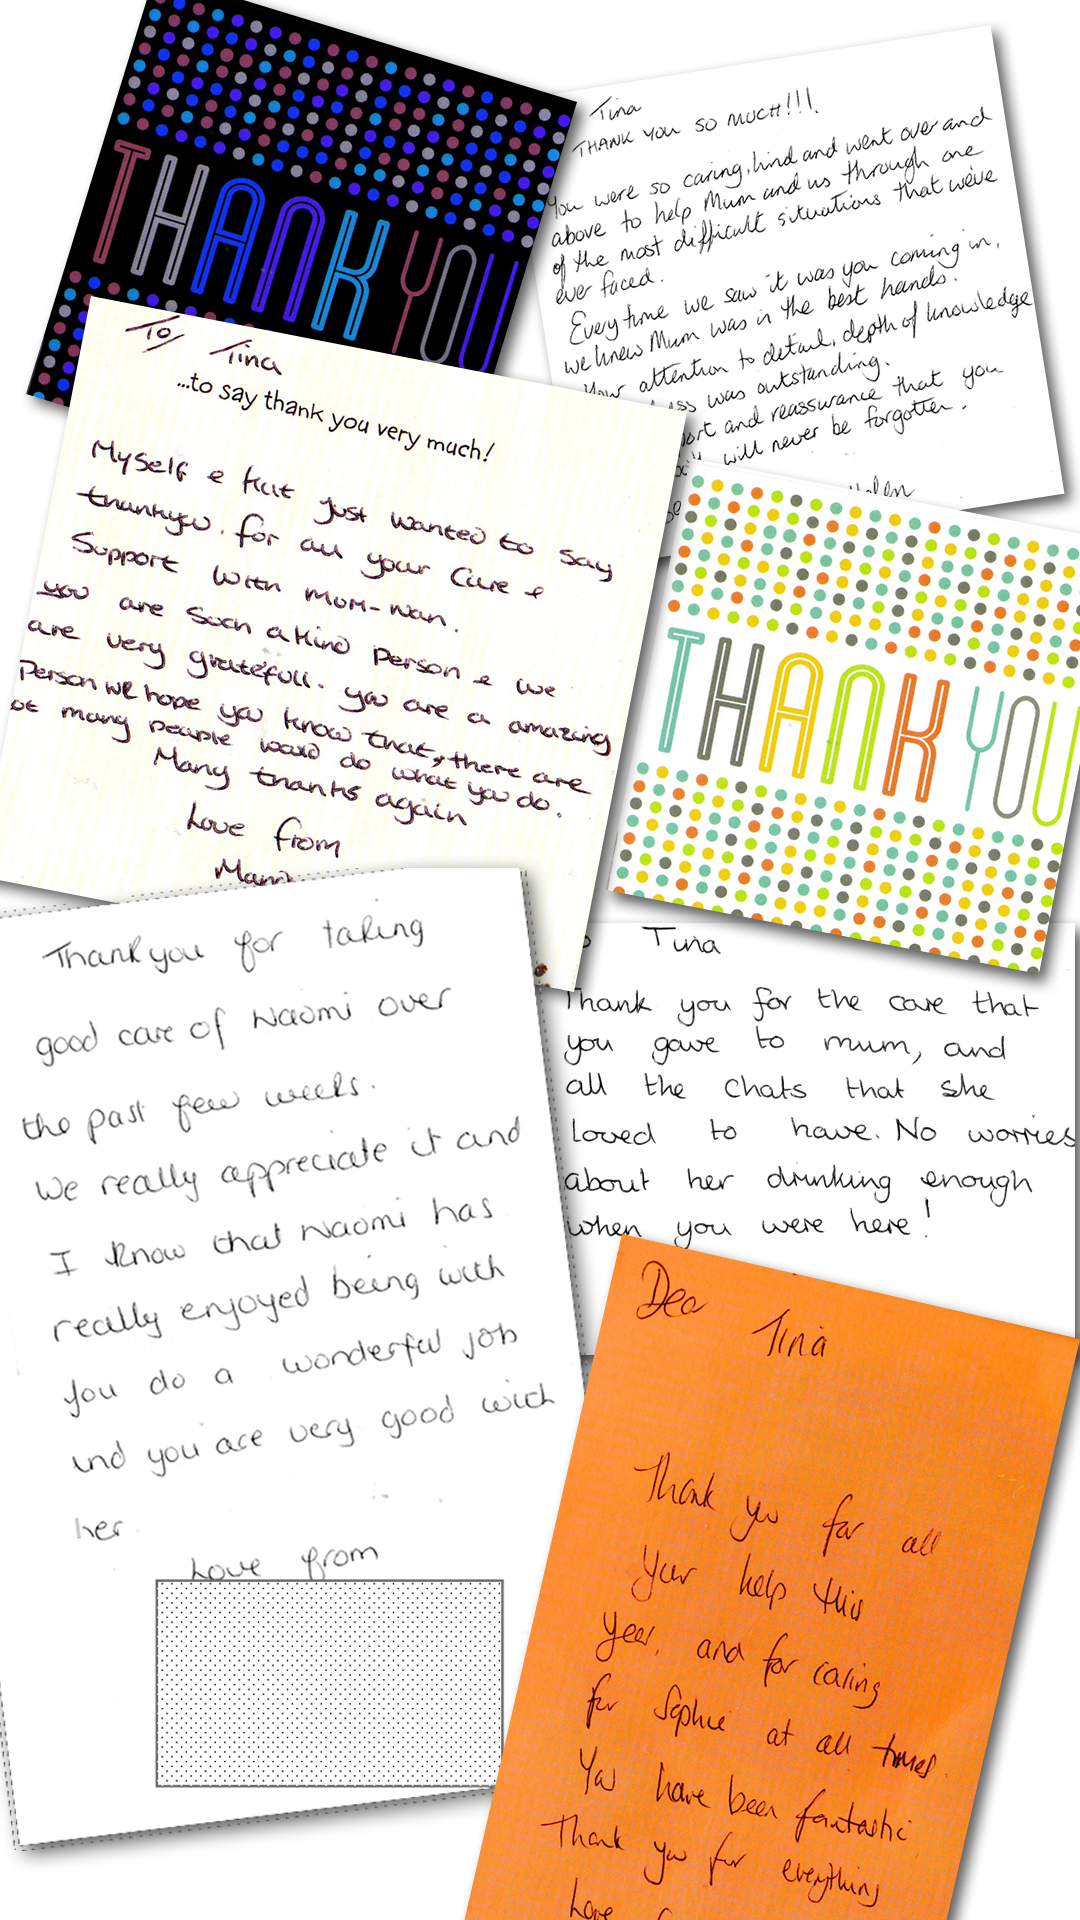 THANK YOU
Tina
THANK YOU SO MUCH!!!
You were so caring, kind and went over and
above to help Mum and us through one
of the most difficult situations that we've
ever faced.
Every time we saw it was you coming in,
we knew Mum was in the best hands.
Your attention to detail, depth of knowledge
was outstanding.
and reassurance that you
will never be forgotten.
To Tina
...to say thank you very much!
Myself & Kat just wanted to say
thankyou. for all your Care &
Support with mom-nan.
you are Such a Kind Person & we
are very gratefull. you are a amazing
Person we hope you know that, there are
ot many people would do what you do.
Many thanks again
Love from
THANK YOU
Thankyou for taking
good care of Naomi over
the past few weeks.
We really appreciate it and
I know that Naomi has
really enjoyed being with
you do a wonderful job
and you are very good with
her
Love from
Tina
Thank you for the care that
you gave to mum, and
all the chats that she
loved to have. No worries
about her drinking enough
when you were here!
Dea Tina
Thank you for all
your help this
year, and for caring
for Sophie at all times.
You have been fantastic
Thank you for everything
Love